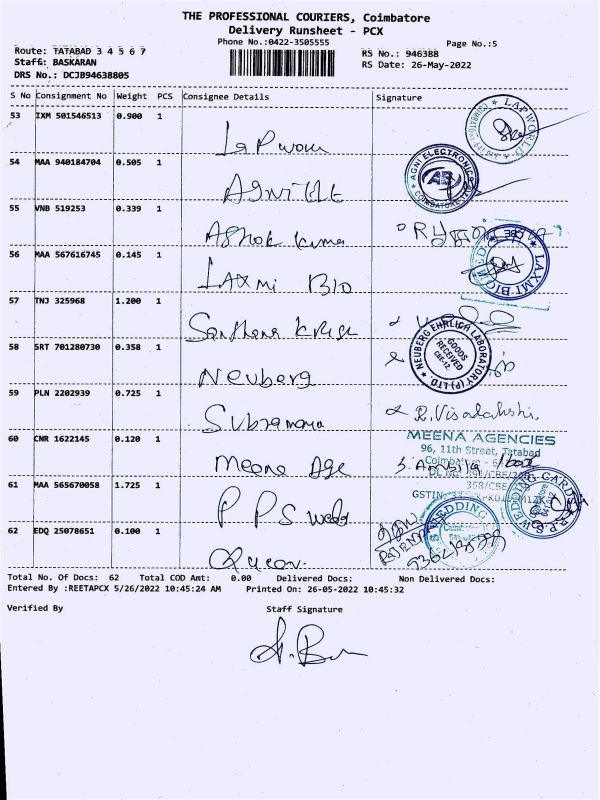 THE PROFESSIONAL COURIERS, Coimbatore
Delivery Runsheet - PCX
Phone No.:0422-3505555
Page No.:5
Route: TATABAD 3 4 5 6 7
RS No.: 946388
Staff: BASKARAN
RS Date: 26-May-2022
DRS No.: DCJB94638805
S No Consignment No Weight PCS Consignee Details Signature
53 IXM 501546513 0.900 1
LAPWORLD
54 MAA 940184704 0.505 1
Agni Ele
AGNI ELECTRONICS
COIMBATORE
55 VNB 519253 0.339 1
Ashok Kuma
56 MAA 567616745 0.145 1
Laxmi Bio
LAXMI-BIO
57 TNJ 325968 1.200 1
Santhana Krish
58 SRT 701280730 0.358 1
Neuberg
NEUBERG EHRLICH LABORATORY (P) LTD.
GOODS RECEIVED
CBE-12
59 PLN 2202939 0.725 1
Subramaya
R. Visalakshi.
60 CNR 1622145 0.120 1
Meena Age
MEENA AGENCIES
96, 11th Street, Tatabad
61 MAA 565670058 1.725 1
PPS wedd
P.P.S. WEDDING CARDS
62 EDQ 25078651 0.100 1
WEDDING
Total No. Of Docs: 62 Total COD Amt: 0.00 Delivered Docs: Non Delivered Docs:
Entered By :REETAPCX 5/26/2022 10:45:24 AM Printed On: 26-05-2022 10:45:32
Verified By Staff Signature